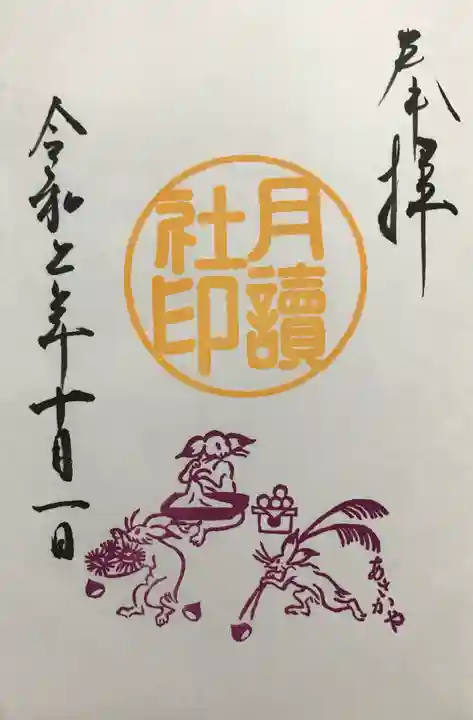 奉拝
月讀
社印
令和年十月一日
あさかや